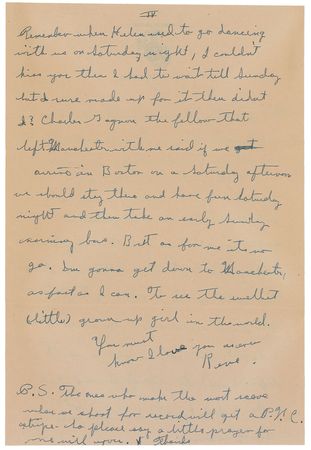 IV
Remember when Helen used to go dancing
with us on Saturday night, I couldn't
kiss you then I had to wait till Sunday
but I sure made up for it then didnt
I? Charles Gagnon the fellow that
left Manchester with me said if we get
arrive in Boston on a Saturday afternoon
we should stay there and have fun Saturday
night and then take an early Sunday
morning bus. But as for me its no
go. Im gonna get down to Manchester,
as fast as I can. To see the swellest
(little) grown up girl in the world.
You must
know I love you now
Rene.
P.S. The ones who make the most score
when we shoot for record will get a P.F.C.
stripe so please say a little prayer for
me will you. Thanks